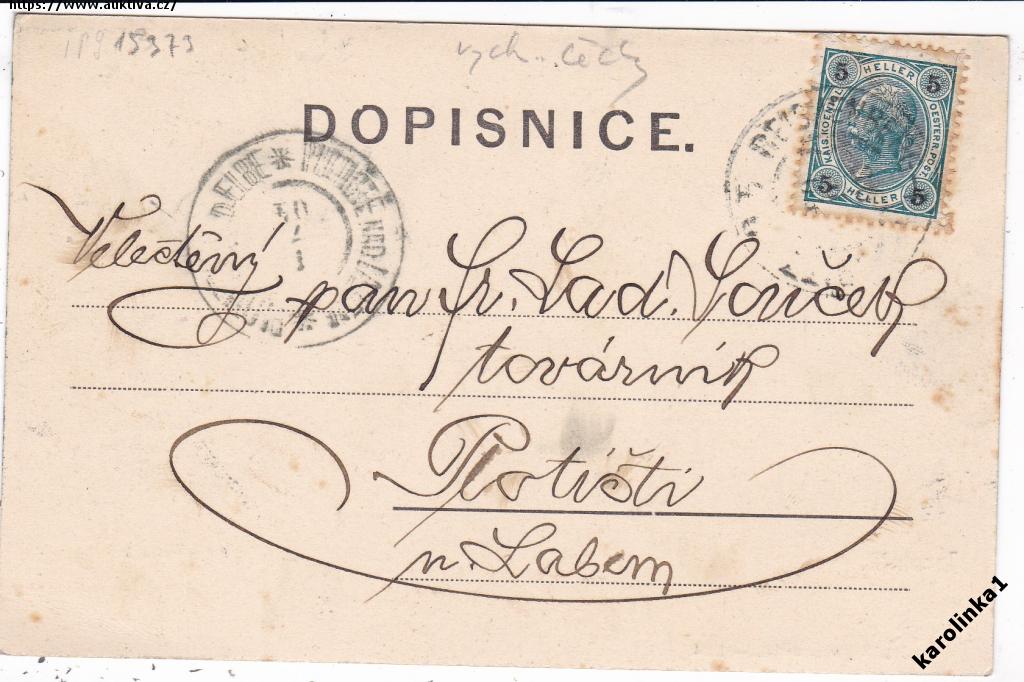 https://www.auktiva.cz/
1P9 15373
vých. Čechy
DOPISNICE.
5 HELLER 5
KAIS. KOENIGL.
OESTERR. POST.
5 HELLER 5
D. ELBE * NAD
Velectěný
pan Fr. Lad. Souček
továrník
Plotiští
n. Labem
karolinka1